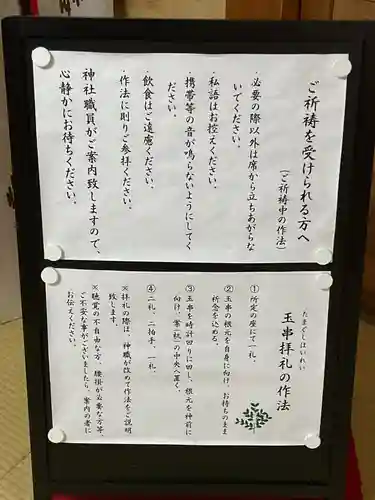 ご祈祷を受けられる方へ
(ご祈祷中の作法)
・必要の際以外は席から立ちあがらな
いでください。
・私語はお控えください。
・携帯等の音が鳴らないようにしてく
ださい。
飲食はご遠慮ください。
・作法に則りご参拝ください。
神社職員がご案内致しますので、
心静かにお待ちください。
たまぐしはいれい
玉串拝礼の作法
①所定の座にて一礼。
②玉串の根元を自身に向け、お待ちのまま
祈念を込める。
③玉串を時計回りに回し、根元を神前に
向け、案(机)の中央へ置く。
④二礼、二拍手、一礼。
※拝礼の際は、神職が改めて作法をご説明
致します。
※聴覚の不自由な方、腰掛が必要な方等、
ご不安な事がございましたら、案内の者に
お伝えください。